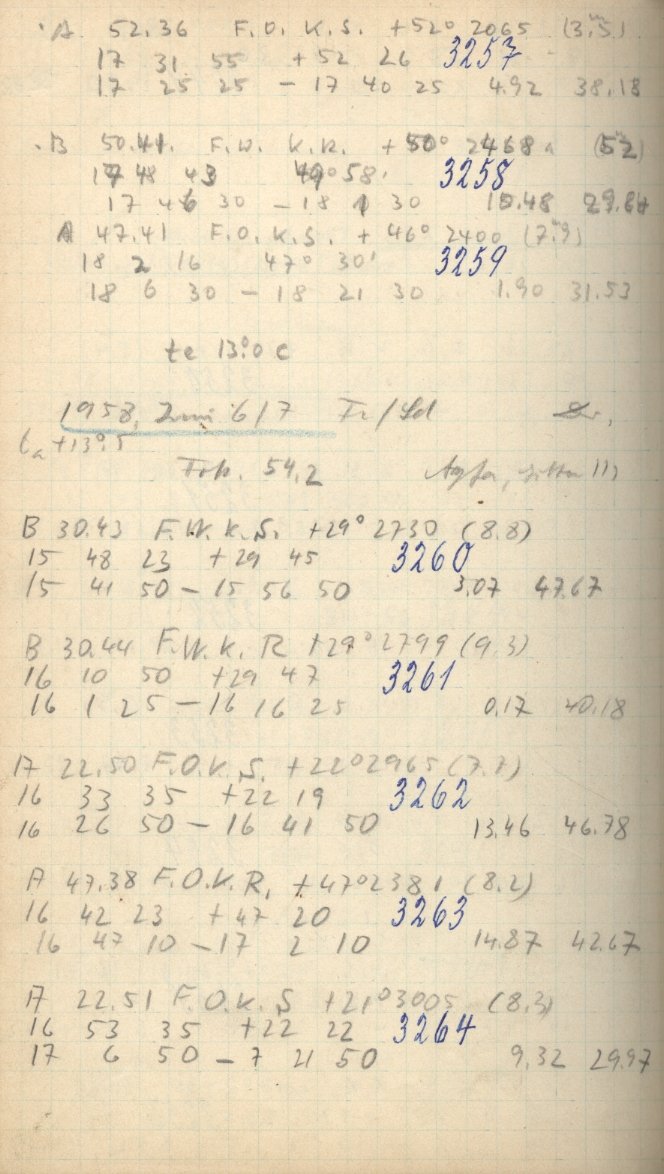 A 52.36 F.O. K.S. +52° 2065 (3.5)
17 31 55 +52 26 3257
17 25 25 - 17 40 25 4.92 38.18
B 50.41. F.W. K.R. +50° 2468 (52)
17 48 43 49° 58' 3258
17 46 30 - 18 1 30 10.48 29.64
A 47.41 F.O. K.S. + 46° 2400 (7.9)
18 2 16 47° 30' 3259
18 6 30 - 18 21 30 1.90 31.53
te 13°.0 C
1958, Juni 6/7 Fr/Sd
ta +13°.5
54,2 Agfa,
B 30.43 F.W. K.S. +29° 2730 (8.8)
15 48 23 +29 45 3260
15 41 50 - 15 56 50 3.07 47.67
B 30.44 F.W. K. R +29° 2799 (9.3)
16 10 50 +29 47 3261
16 1 25 - 16 16 25 0.17 40.18
A 22.50 F.O.K.S. +22° 2965 (7.7)
16 33 35 +22 19 3262
16 26 50 - 16 41 50 13.46 46.78
A 47.38 F.O.K.R. +47° 2381 (8.2)
16 42 23 +47 20 3263
16 47 10 - 17 2 10 14.87 42.67
A 22.51 F.O.K.S +21° 3005 (8.3)
16 53 35 +22 22 3264
17 6 50 - 7 21 50 9.32 29.97